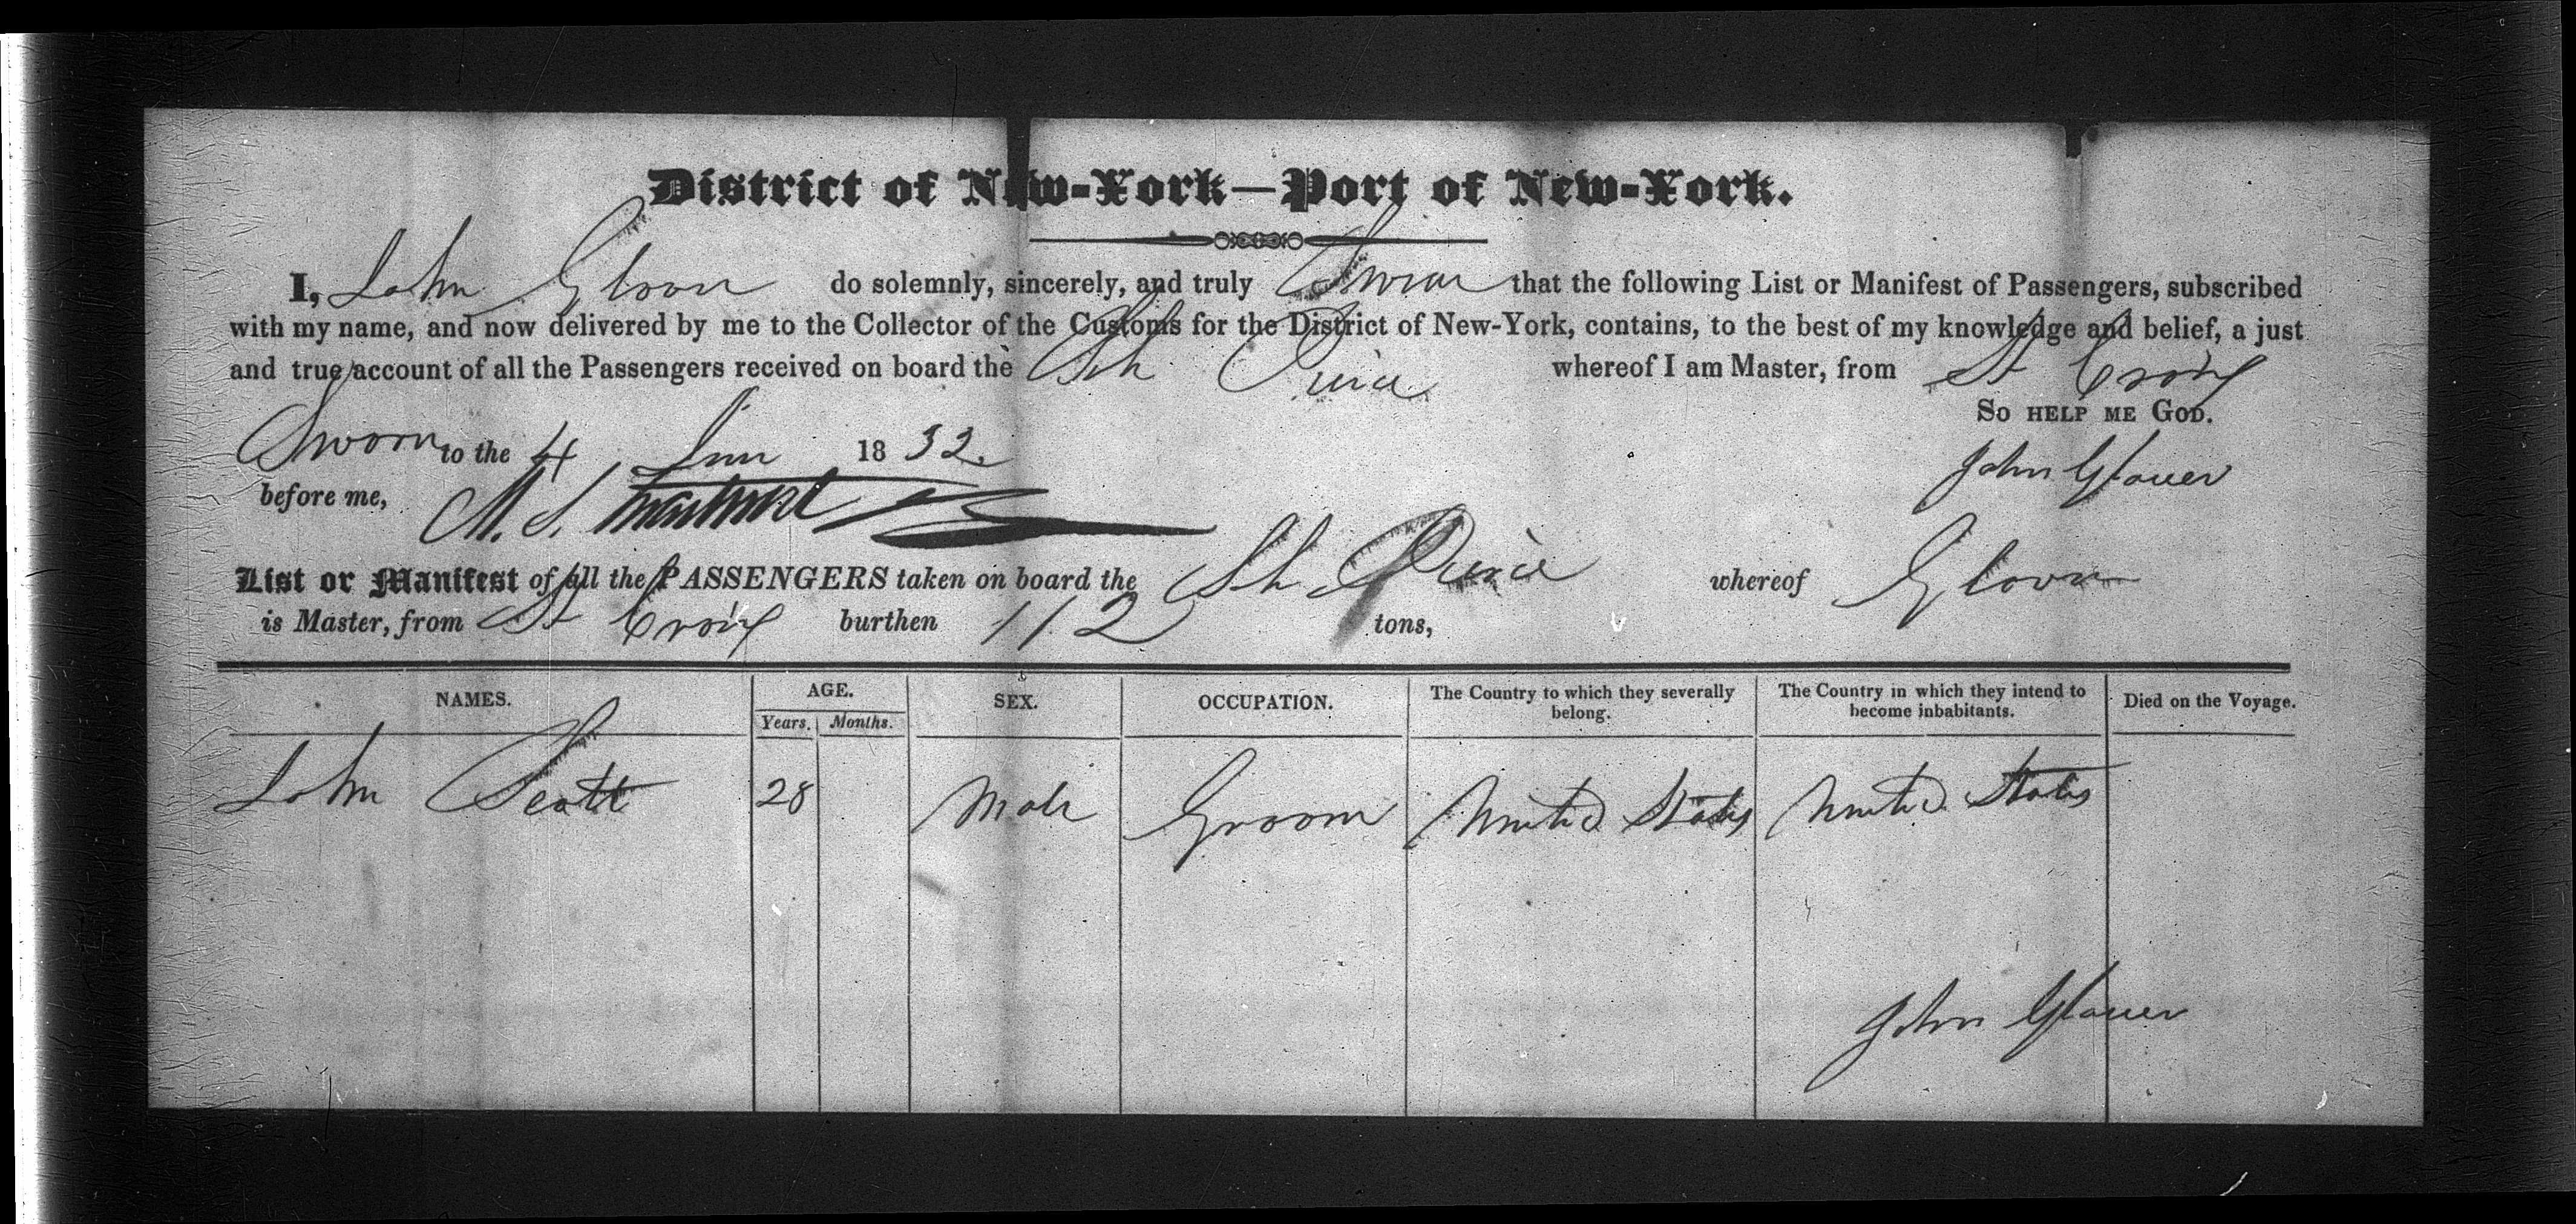 District of New-York—Port of New-York.
I, John Glover do solemnly, sincerely, and truly Swear that the following List or Manifest of Passengers, subscribed
with my name, and now delivered by me to the Collector of the Customs for the District of New-York, contains, to the best of my knowledge and belief, a just
and true account of all the Passengers received on board the Sch whereof I am Master, from St Croix
So help me God.
Sworn to the 4 18 32. John Glover
before me, M. S.
List or Manifest of all the PASSENGERS taken on board the Sch whereof Glover
is Master, from St Croix burthen 112 tons,
NAMES. AGE. SEX. OCCUPATION. The Country to which they severally belong. The Country in which they intend to become inhabitants. Died on the Voyage.
Years. Months.
John Scott 28 Male Groom United States United States
John Glover